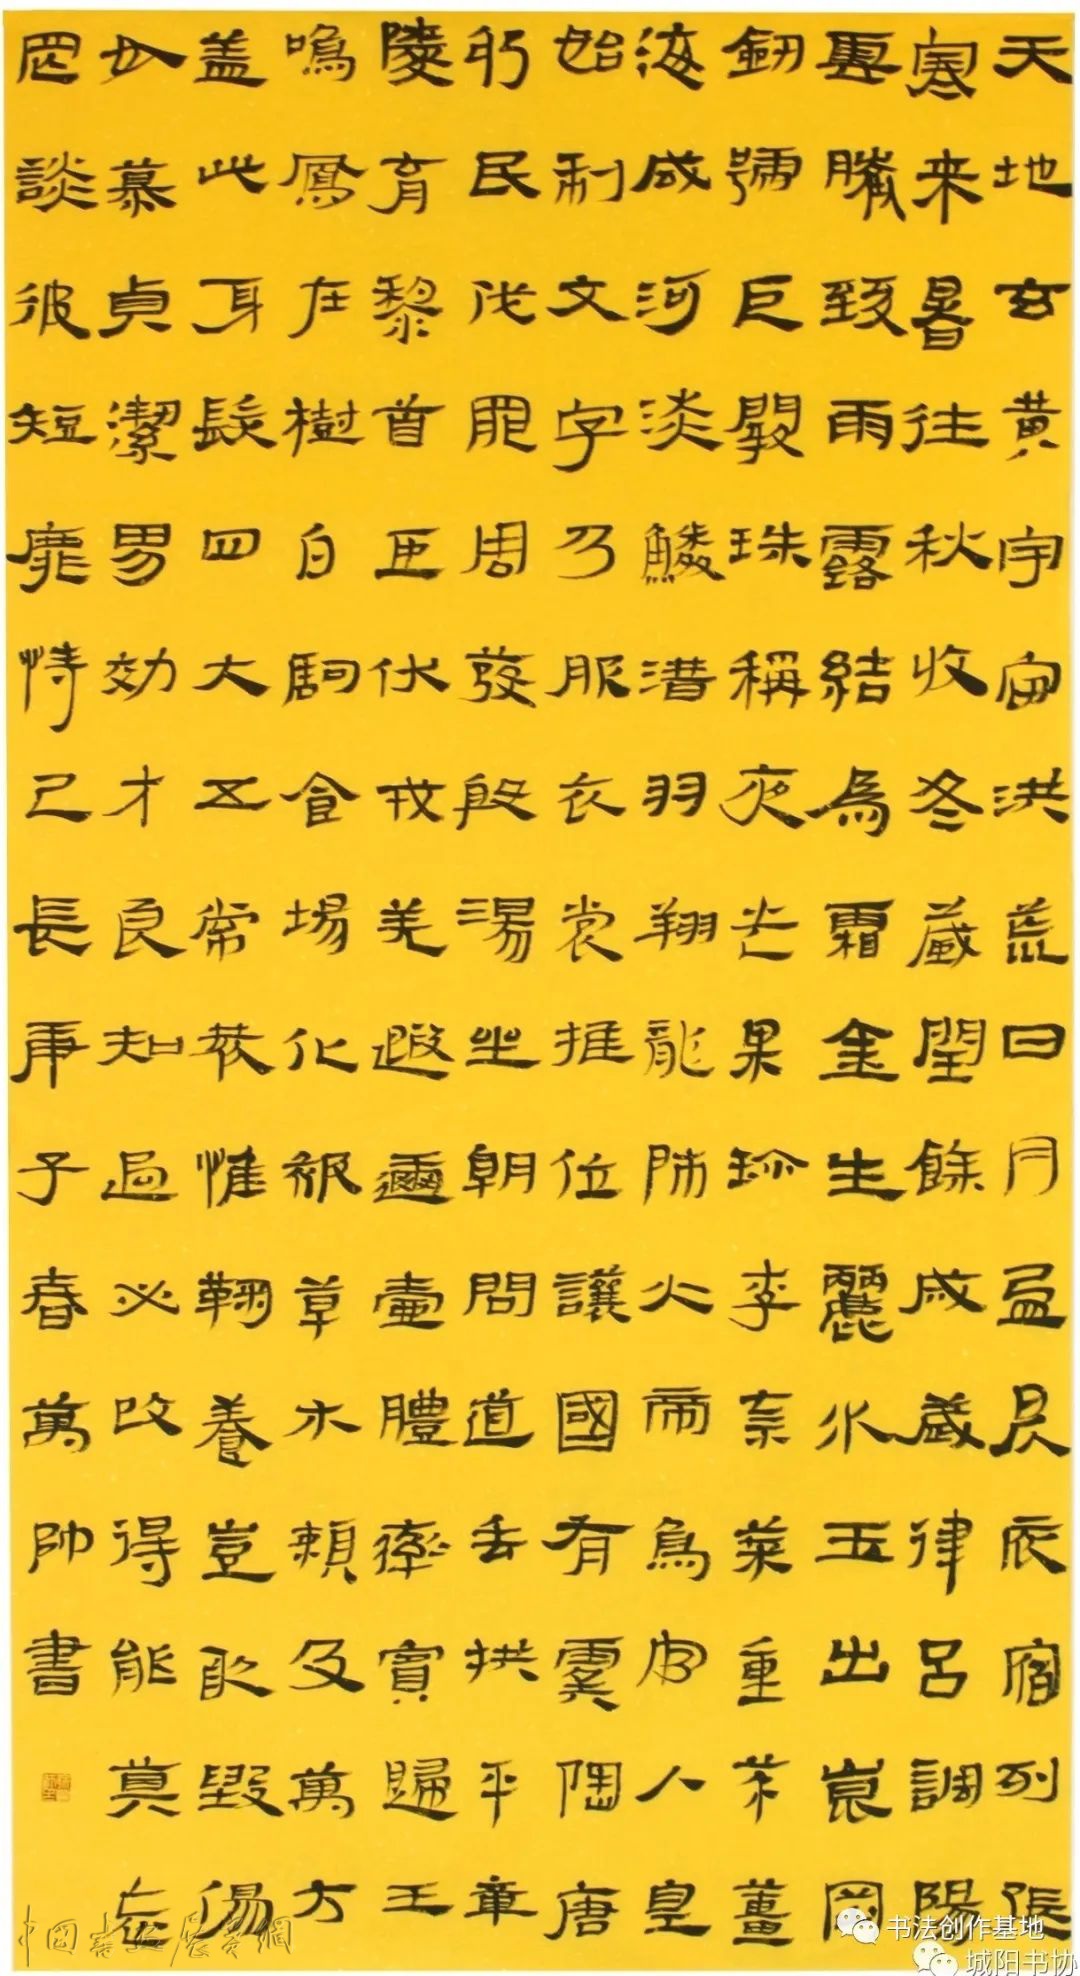 天地玄黄宇宙洪荒日月盈昃辰宿列張
寒来暑往秋收冬藏閏餘成歲律呂調陽
雲騰致雨露結為霜金生麗水玉出崑岡
釼號巨闕珠稱夜光果珍李柰菜重芥薑
海咸河淡鱗潜羽翔龍師火帝鳥官人皇
始制文字乃服衣裳推位讓國有虞陶唐
弔民伐罪周發殷湯坐朝問道垂拱平章
陵育黎首臣伏戎羌遐邇壹體率賓歸王
鳴鳳在樹白駒食場化被草木賴及萬方
盖此身髮四大五常恭惟鞠養豈敢毀傷
女慕貞潔男効才良知過必改得能莫忘
罔談彼短靡恃己長庚子春萬帥書
中國書法展賽網
书法创作基地
城阳书协